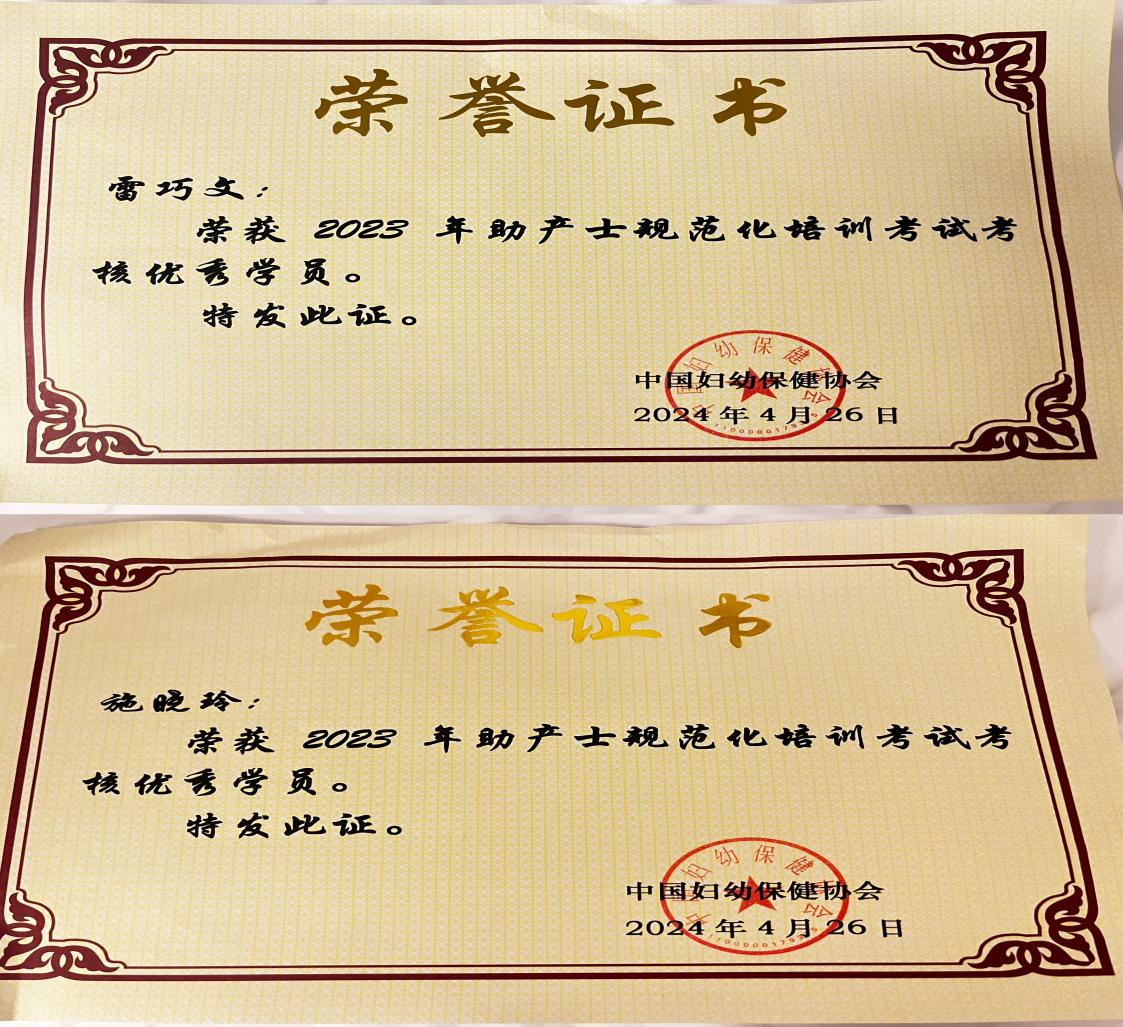 荣誉证书
雷巧文：
荣获 2023 年助产士规范化培训考试考
核优秀学员。
特发此证。
中国妇幼保健协会
中国妇幼保健协会
2024 年 4 月 26 日
荣誉证书
施晓玲：
荣获 2023 年助产士规范化培训考试考
核优秀学员。
特发此证。
中国妇幼保健协会
中国妇幼保健协会
2024 年 4 月 26 日